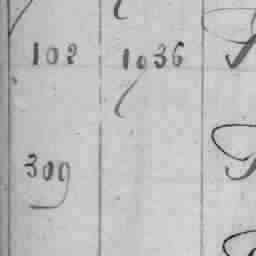 102 1036
309